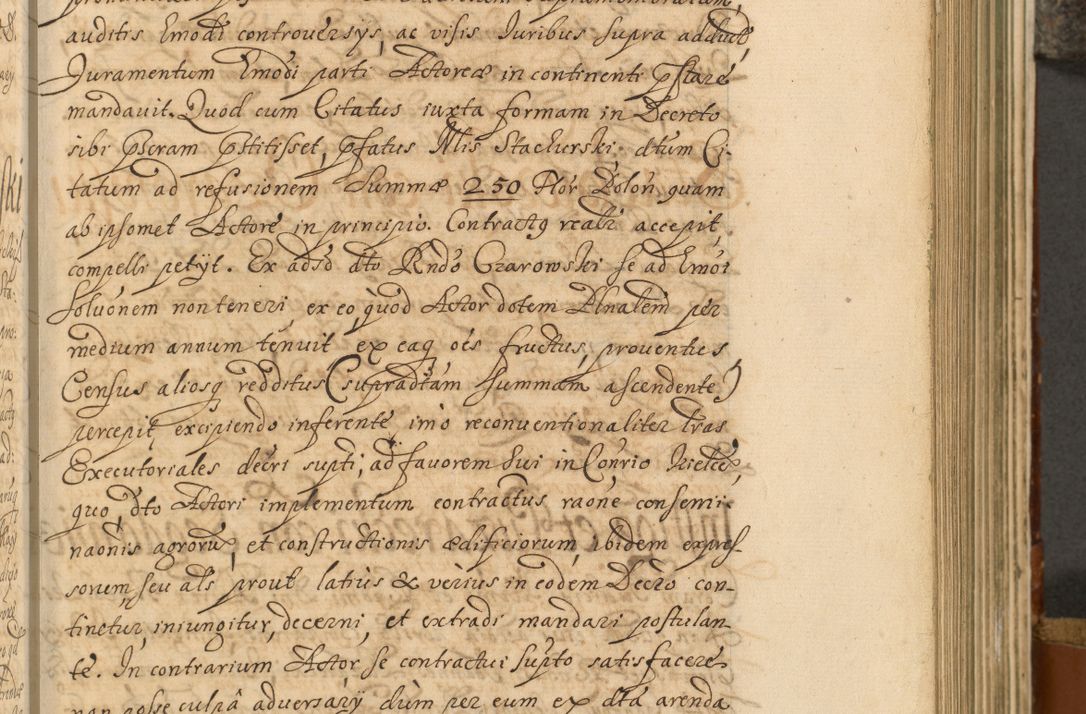 auditis Emodi controversys, ac visis Iuribus supra adduct
Iuramentum Emodi parti Actoreæ in continenti pstare
mandavit. Quod cum Citatus iuxta formam in Decreto
sibi pseram pstitisset, pfatus Mlis Stachurski dtum Ci-
tatum ad refusionem Summæ 250 Flor Polon quam
ab ipsomet Actore in principio Contractq realr accepit,
compelli petyt. Ex adso dto Rndo Czarowski se ad Emoi
Soluonem non teneri ex eo, quod Actor dotem Plnalem per
medium annum tenuit ex eaq oes fructus, proventus
Census aliosq redditus (supradtam Summam ascendente)
percepit, excipiendo inferente, imo reconventionaliter Lras
Executoriales decri supti, ad favorem Sui in Conrio Kielce
quo dto Actori implementum contractus raone consemi-
naonis agroru, et constructionis ædificiorum, ibidem expres
sorum, seu als prout latius & verius in eodem Decro con-
tinetur, iniungitur, decerni, et extradi mandari postulan-
te. In contrarium Actor se contractui supto satisfacere
non posse culpâ adversary dum per eum ex dta arenda